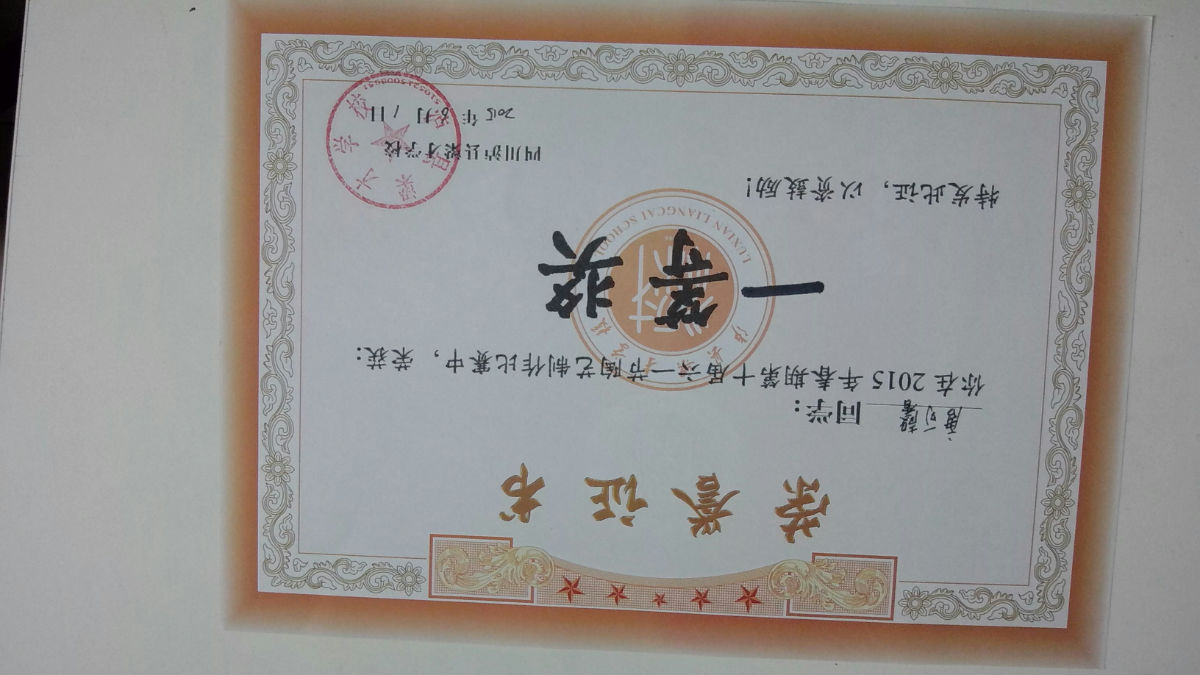 荣誉证书
同学：
你在2015年春期第十届六一节陶艺制作比赛中，荣获：
一等奖
特发此证，以资鼓励！
四川泸县梁才学校
2015年6月1日
LUXIAN LIANGCAI SCHOOL